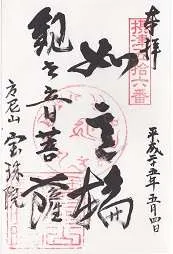 奉拝
摂津八十六番
平成二十五年五月四日
如意輪
観世音菩薩
方尼山 宝珠院